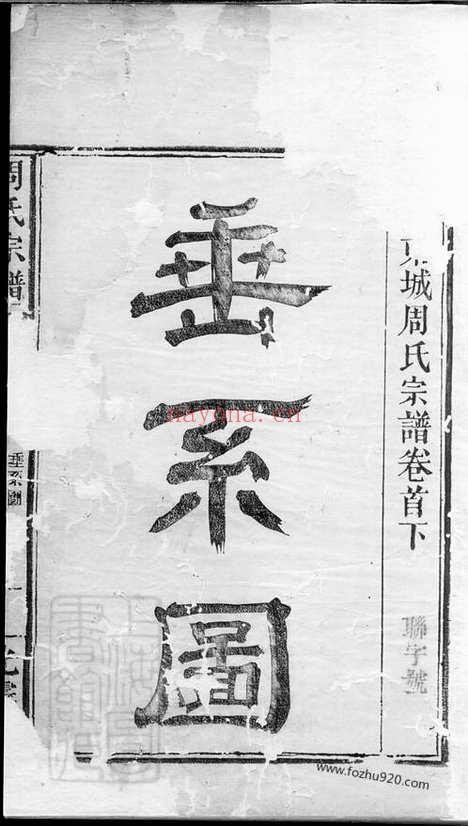 城周氏宗譜卷首下
聯字號
垂系圖
周氏宗譜
垂系圖
nayona.cn
www.fozhu920.com